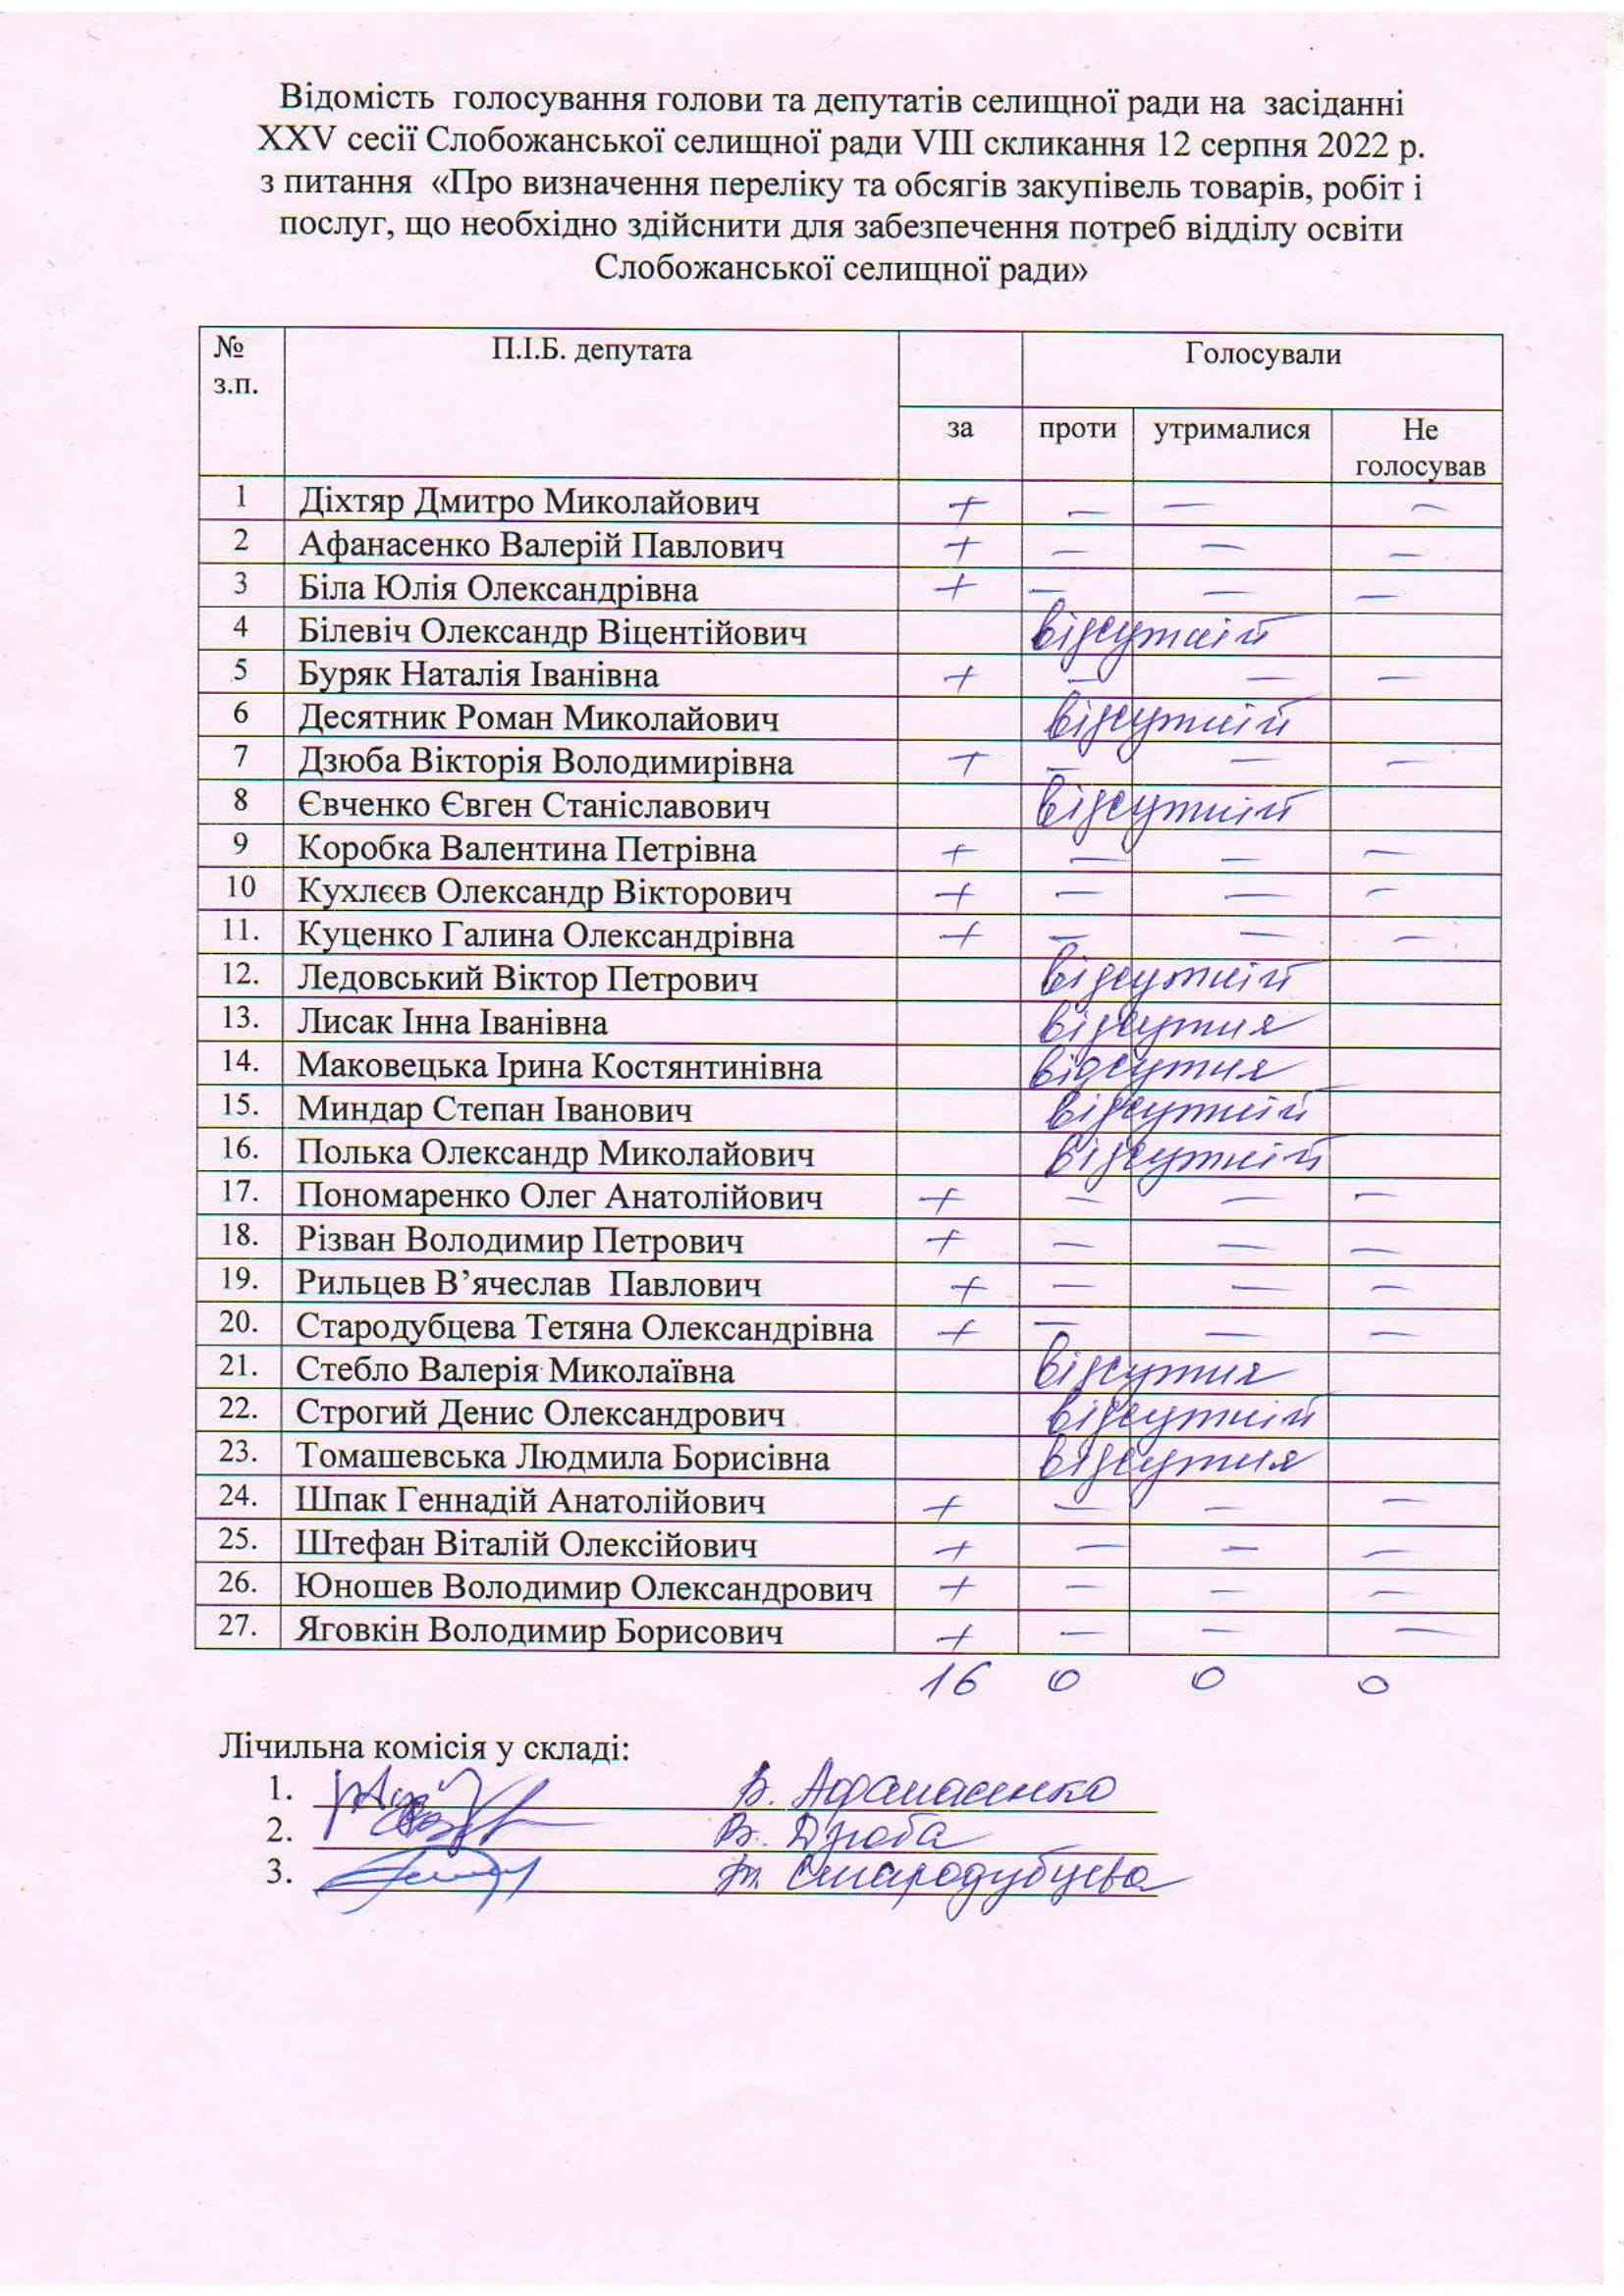 Відомість голосування голови та депутатів селищної ради на засіданні
XXV сесії Слобожанської селищної ради VIII скликання 12 серпня 2022 р.
з питання «Про визначення переліку та обсягів закупівель товарів, робіт і
послуг, що необхідно здійснити для забезпечення потреб відділу освіти
Слобожанської селищної ради»
№ з.п. П.І.Б. депутата Голосували
за проти утрималися Не голосував
1 Діхтяр Дмитро Миколайович + — — —
2 Афанасенко Валерій Павлович + — — —
3 Біла Юлія Олександрівна + — — —
4 Білевіч Олександр Віцентійович відсутній
5 Буряк Наталія Іванівна + — — —
6 Десятник Роман Миколайович відсутній
7 Дзюба Вікторія Володимирівна + — — —
8 Євченко Євген Станіславович відсутній
9 Коробка Валентина Петрівна + — — —
10 Кухлєєв Олександр Вікторович + — — —
11. Куценко Галина Олександрівна + — — —
12. Ледовський Віктор Петрович відсутній
13. Лисак Інна Іванівна відсутня
14. Маковецька Ірина Костянтинівна відсутня
15. Миндар Степан Іванович відсутній
16. Полька Олександр Миколайович відсутній
17. Пономаренко Олег Анатолійович + — — —
18. Різван Володимир Петрович + — — —
19. Рильцев В’ячеслав Павлович + — — —
20. Стародубцева Тетяна Олександрівна + — — —
21. Стебло Валерія Миколаївна відсутня
22. Строгий Денис Олександрович відсутній
23. Томашевська Людмила Борисівна відсутня
24. Шпак Геннадій Анатолійович + — — —
25. Штефан Віталій Олексійович + — — —
26. Юношев Володимир Олександрович + — — —
27. Яговкін Володимир Борисович + — — —
16 0 0 0
Лічильна комісія у складі:
1. В. Афанасенко
2. В. Дзюба
3. Т. Стародубцева